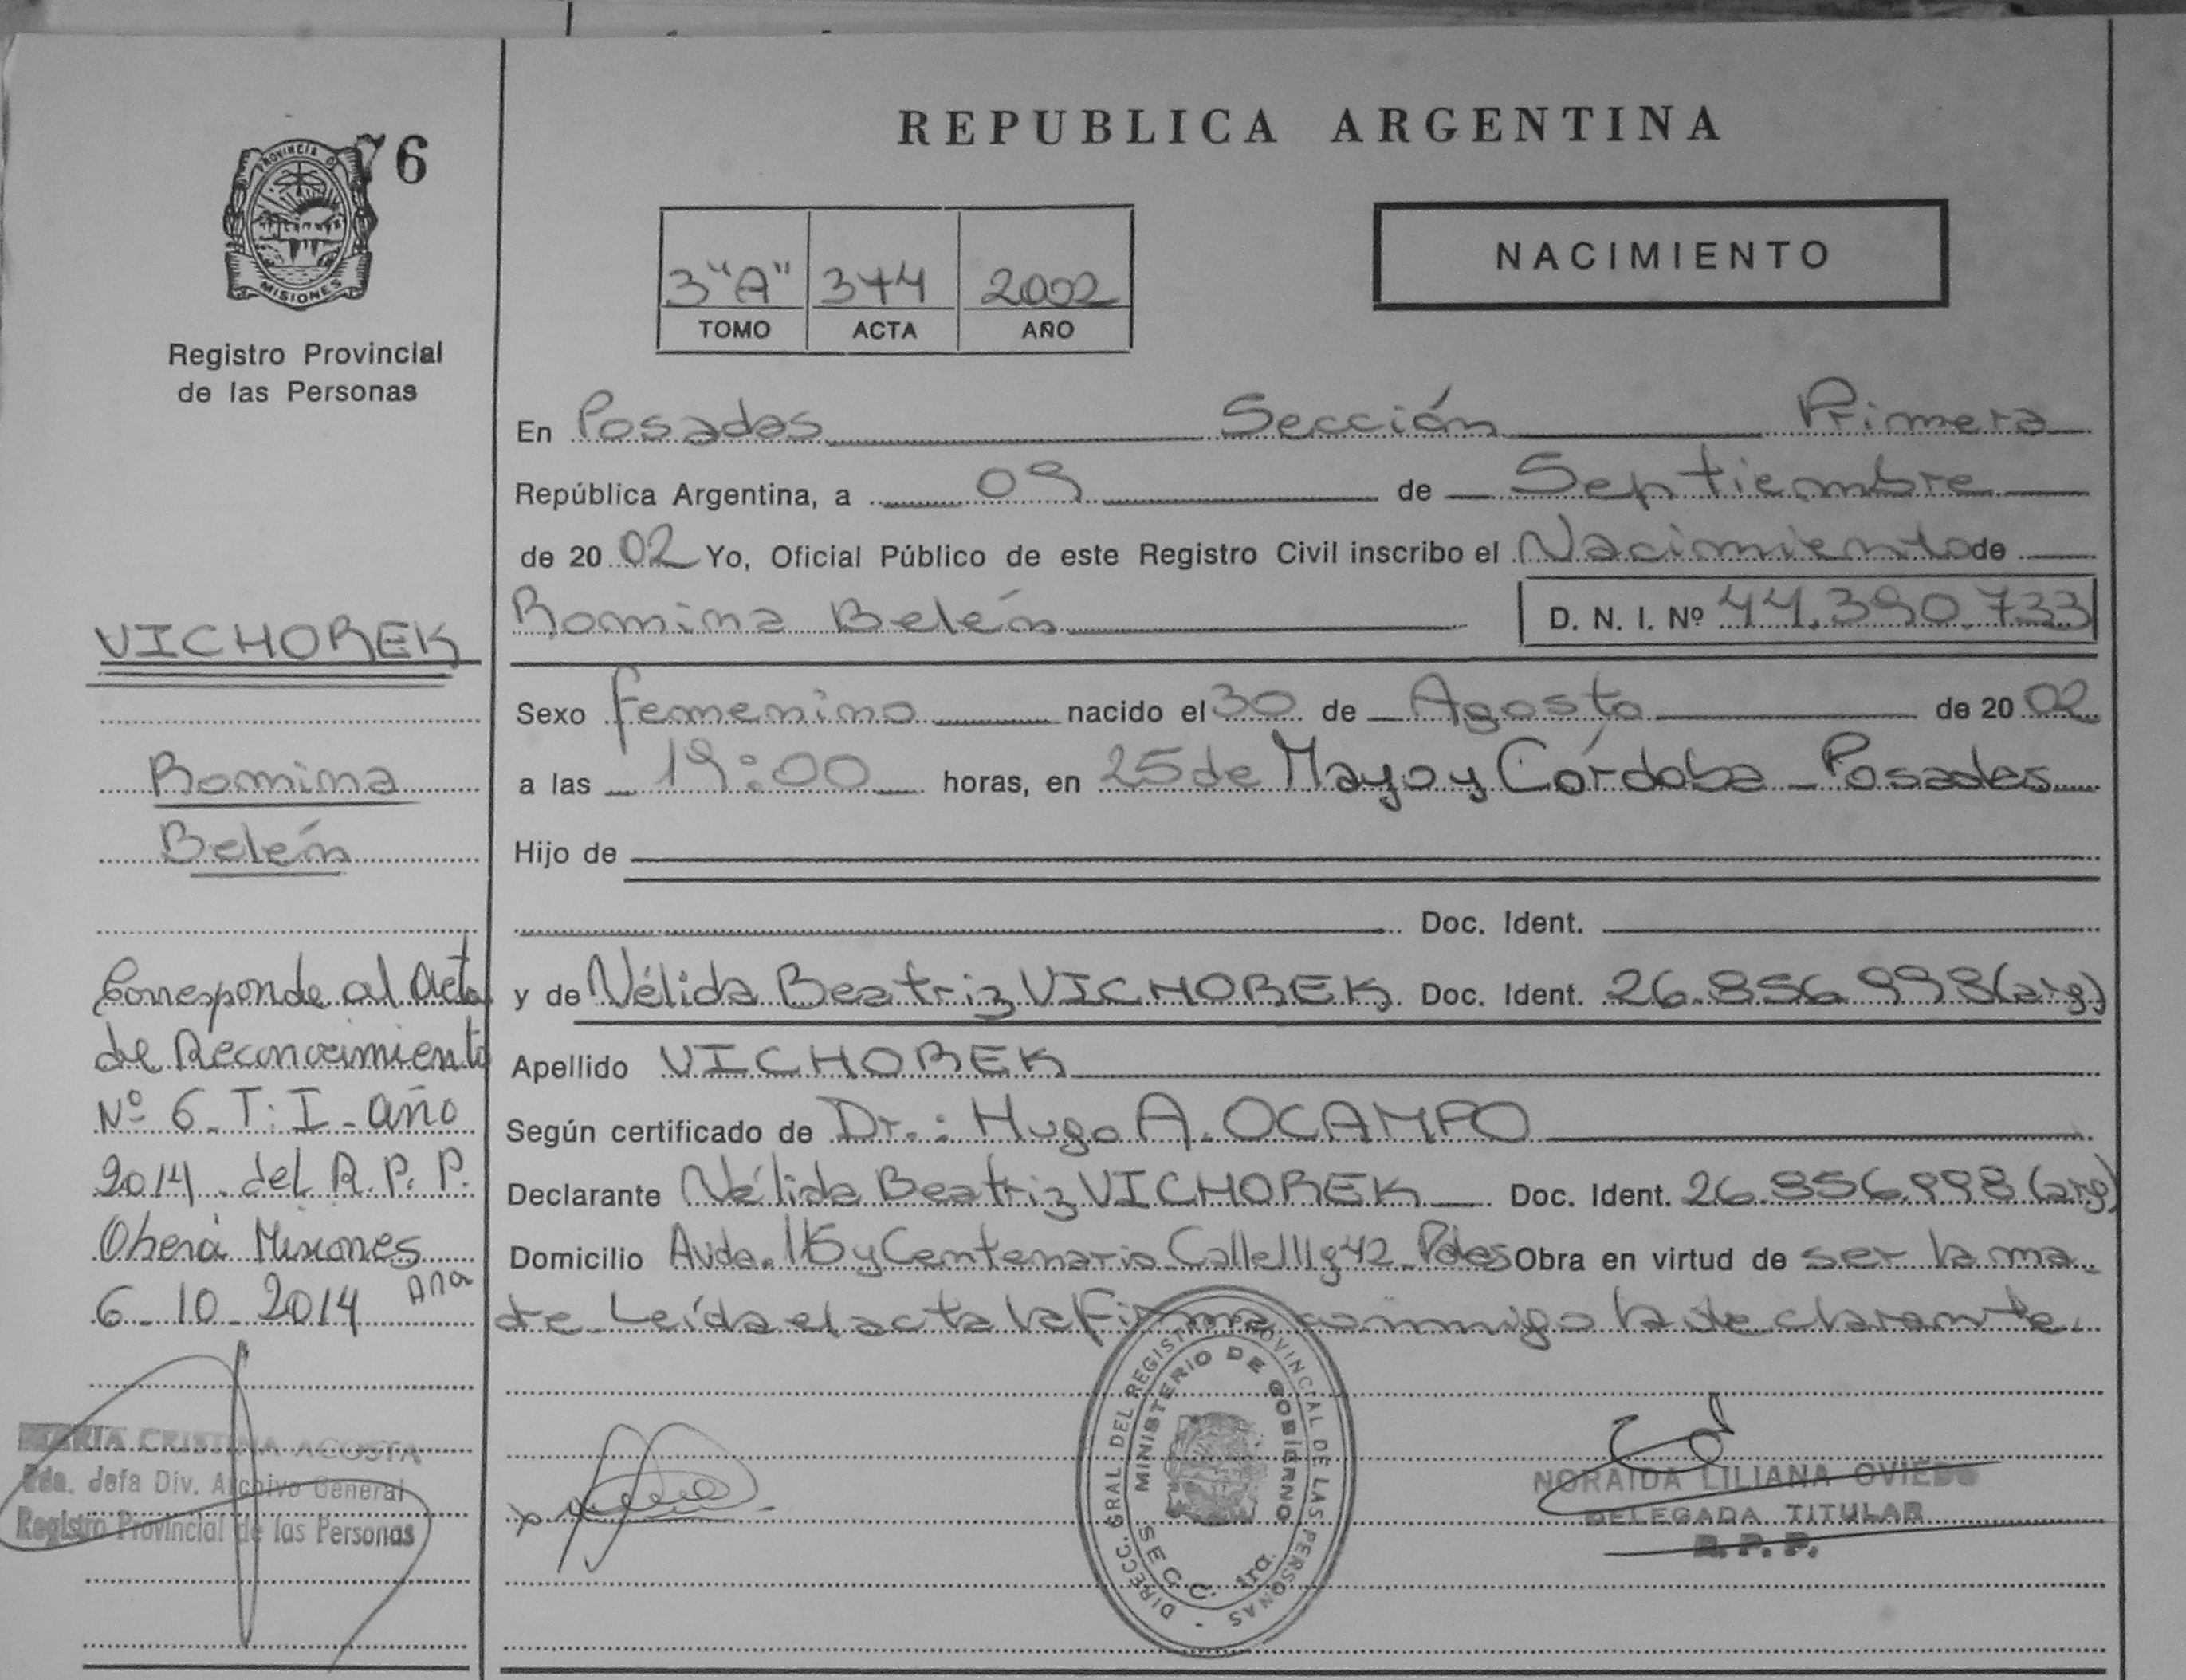 76
PROVINCIA DE
MISIONES
Registro Provincial
de las Personas
VICHOREK
Romina
Belén
Corresponde al Acta
de Reconocimiento
Nº 6 - T: I - año
2014 - del R. P. P.
Oberá Misiones
6 - 10 - 2014 Ana
MARIA CRISTINA ACOSTA
2da. Jefa Div. Archivo General
Registro Provincial de las Personas
REPUBLICA ARGENTINA
3"A" 374 2002
TOMO ACTA AÑO
NACIMIENTO
En Posadas Sección Primera
República Argentina, a 09 de Septiembre
de 2002 Yo, Oficial Público de este Registro Civil inscribo el Nacimiento de
Romina Belén D. N. I. Nº 44.390.733
Sexo femenino nacido el 30 de Agosto de 2002
a las 19:00 horas, en 25 de Mayo y Córdoba - Posadas
Hijo de
Doc. Ident.
y de Nélida Beatriz VICHOREK Doc. Ident. 26.856.998 (arg)
Apellido VICHOREK
Según certificado de Dr.: Hugo A. OCAMPO
Declarante Nélida Beatriz VICHOREK Doc. Ident. 26.856.998 (arg)
Domicilio Avda. 115 y Centenario Calle 111 y 42 - Pdas Obra en virtud de ser la ma
dre - Leída el acta la firma conmigo la declarante.
DIRECC. GRAL DEL REGISTRO PROVINCIAL DE LAS PERSONAS
MINISTERIO DE GOBIERNO
SECC. 1ra.
NORAIDA LILIANA OVIEDO
DELEGADA TITULAR
R. P. P.